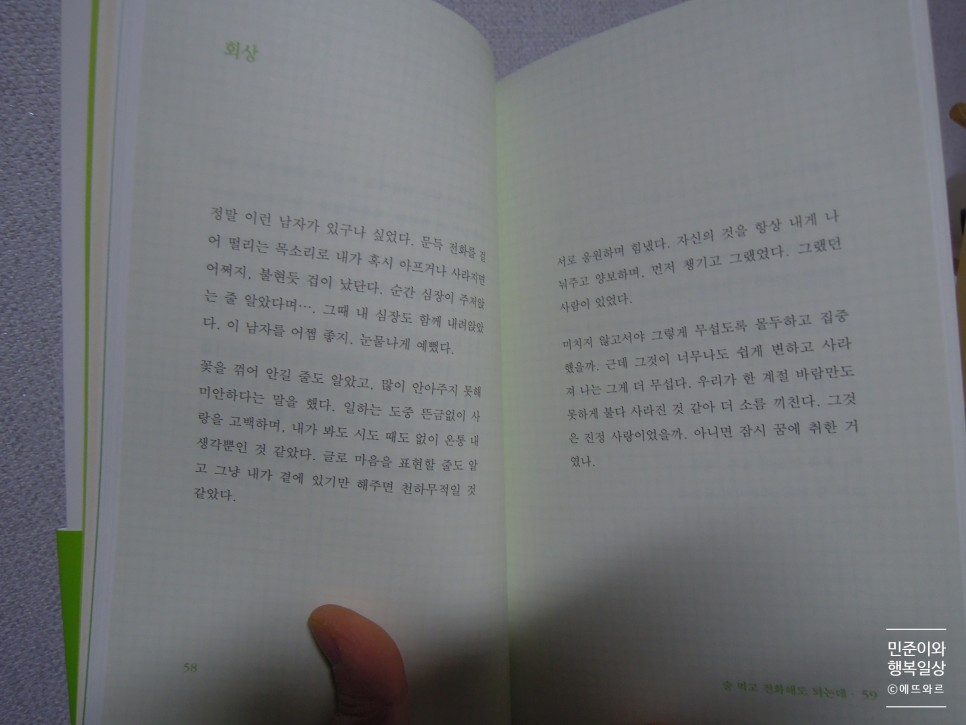 회상
정말 이런 남자가 있구나 싶었다. 문득 전화를 걸
어 떨리는 목소리로 내가 혹시 아프거나 사라지면
어쩌지, 불현듯 겁이 났단다. 순간 심장이 주저앉
는 줄 알았다며…. 그때 내 심장도 함께 내려앉았
다. 이 남자를 어쩜 좋지. 눈물나게 예뻤다.
꽃을 꺾어 안길 줄도 알았고, 많이 안아주지 못해
미안하다는 말을 했다. 일하는 도중 뜬금없이 사
랑을 고백하며, 내가 봐도 시도 때도 없이 온통 내
생각뿐인 것 같았다. 글로 마음을 표현할 줄도 알
고 그냥 내가 곁에 있기만 해주면 천하무적일 것
같았다.
58
서로 응원하며 힘냈다. 자신의 것을 항상 내게 나
눠주고 양보하며, 먼저 챙기고 그랬었다. 그랬던
사람이 있었다.
미치지 않고서야 그렇게 무섭도록 몰두하고 집중
했을까. 근데 그것이 너무나도 쉽게 변하고 사라
져 나는 그게 더 무섭다. 우리가 한 계절 바람만도
못하게 불다 사라진 것 같아 더 소름 끼친다. 그것
은 진정 사랑이었을까. 아니면 잠시 꿈에 취한 거
였나.
술 먹고 전화해도 되는데 · 59
민준이와
행복일상
ⓒ에뜨와르